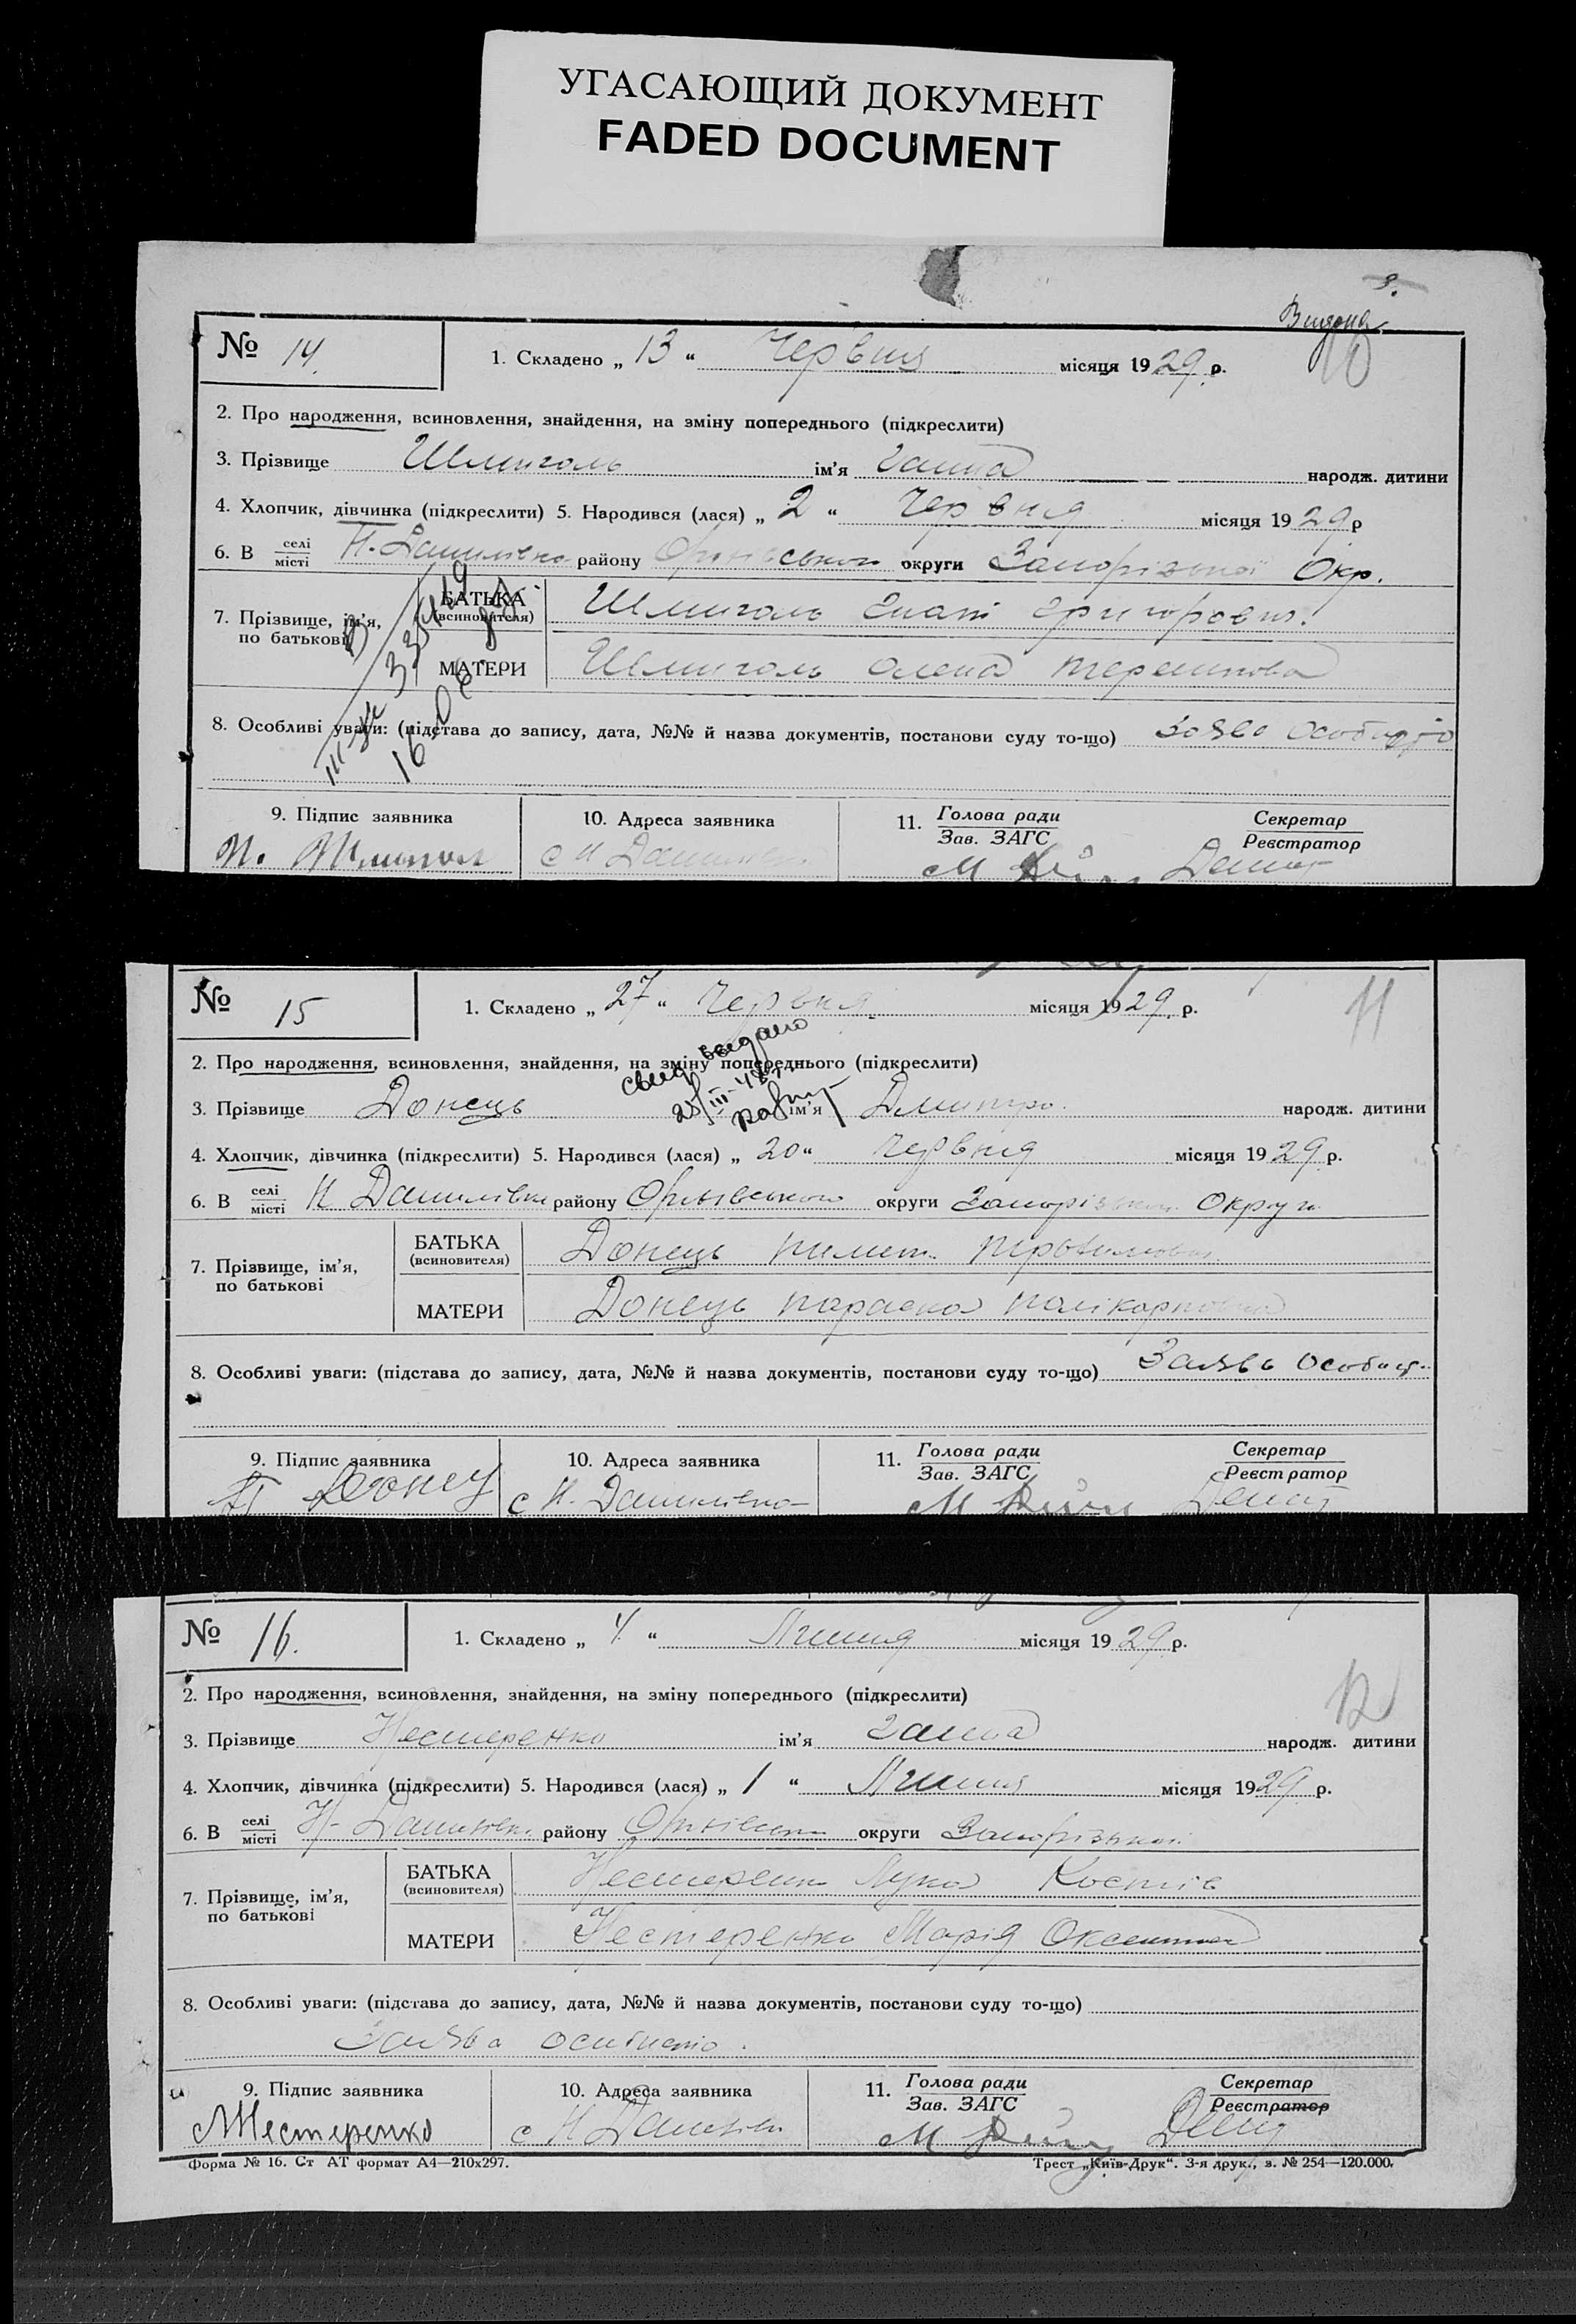 УГАСАЮЩИЙ ДОКУМЕНТ
FADED DOCUMENT
№ 14.
1. Складено „ 13 “ Червня місяця 1929 р.
10
2. Про народження, всиновлення, знайдення, на зміну попереднього (підкреслити)
3. Прізвище Шмиголь ім’я Ганна народж. дитини
4. Хлопчик, дівчинка (підкреслити) 5. Народився (лася) „ 2 “ Червня місяця 1929 р
6. В селі/місті Н-Данилівка району Оріхівського округи Запорізької Окр.
7. Прізвище, ім’я, по батькові
БАТЬКА (всиновителя) Шмиголь Гнат Григорович.
МАТЕРИ Шмиголь Олена Терешкова
8. Особливі уваги: (підстава до запису, дата, №№ й назва документів, постанови суду то-що) Заява
9. Підпис заявника
10. Адреса заявника
11. Голова ради/Зав. ЗАГС
Секретар/Реєстратор
с Н Данилівка
№ 15
1. Складено „ 27 “ Червня місяця 1929 р.
11
2. Про народження, всиновлення, знайдення, на зміну попереднього (підкреслити)
3. Прізвище Донець ім’я Дмитро народж. дитини
4. Хлопчик, дівчинка (підкреслити) 5. Народився (лася) „ 20 “ Червня місяця 1929 р.
6. В селі/місті Н Данилівка району Оріхівського округи Запорізької Округи
7. Прізвище, ім’я, по батькові
БАТЬКА (всиновителя) Донець
МАТЕРИ Донець Параска Полікарповна
8. Особливі уваги: (підстава до запису, дата, №№ й назва документів, постанови суду то-що) Заява
9. Підпис заявника
10. Адреса заявника
11. Голова ради/Зав. ЗАГС
Секретар/Реєстратор
Донец
с Н. Данилівка
№ 16.
1. Складено „ 4 “ Липня місяця 1929 р.
12
2. Про народження, всиновлення, знайдення, на зміну попереднього (підкреслити)
3. Прізвище Нестеренко ім’я Ганна народж. дитини
4. Хлопчик, дівчинка (підкреслити) 5. Народився (лася) „ 1 “ Липня місяця 1929 р.
6. В селі/місті Н-Данилівка району Оріхівського округи Запорізької
7. Прізвище, ім’я, по батькові
БАТЬКА (всиновителя) Нестеренко Лука Костів
МАТЕРИ Нестеренко Марія
8. Особливі уваги: (підстава до запису, дата, №№ й назва документів, постанови суду то-що)
Заява
9. Підпис заявника
10. Адреса заявника
11. Голова ради/Зав. ЗАГС
Секретар/Реєстратор
Нестеренко
с Н Данилівка
Форма № 16. Ст АТ формат А4—210х297.
Трест „Київ-Друк“. 3-я друк., з. № 254—120.000.